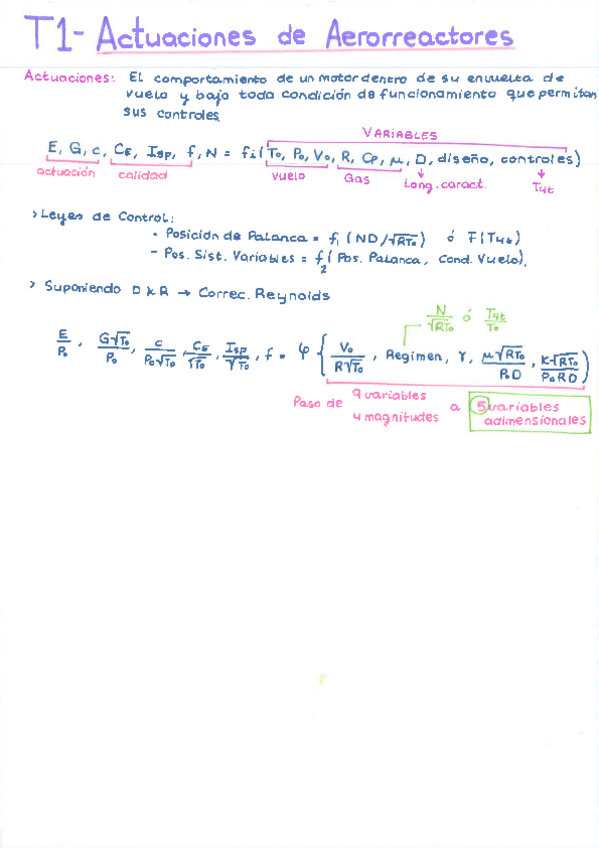 T1- Actuaciones de Aerorreactores
Actuaciones: El comportamiento de un motor dentro de su envuelta de
vuelo y bajo toda condición de funcionamiento que permitan
sus controles.
VARIABLES
E, G, c, CE, Isp, f, N = fi (To, Po, Vo, R, Cp, μ, D, diseño, controles)
actuación calidad vuelo Gas Long. caract. T4t
> Leyes de Control:
• Posición de Palanca = f1 (ND/√RTo) ó F(T4t)
- Pos. Sist. Variables = f2 (Pos. Palanca, Cond. Vuelo).
> Suponiendo D k R → Correc. Reynolds
N/√RTo ó T4t/To
E/Po, G√To/Po, c/Po√To, CE/√To, Isp/√To, f = φ { Vo/R√To, Regimen, γ, μ√RTo/PoD, K√RTo/PoRD )
Paso de 9 variables
4 magnitudes a 5 variables
adimensionales